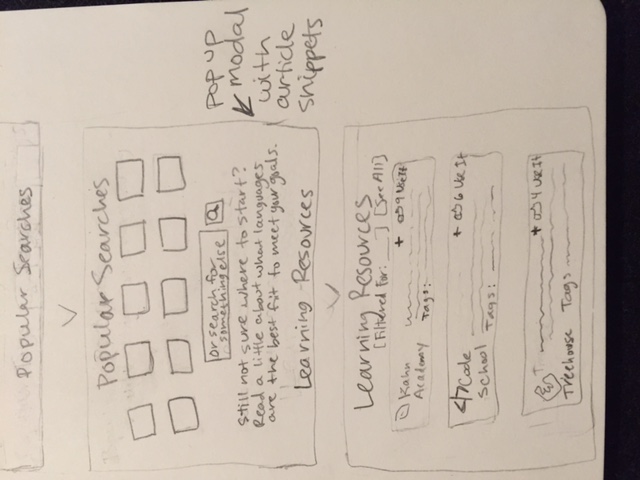 Popular Searches
Popular Searches
Or search for
something else
Still not sure where to start?
Read a little about what languages
are the best fit to meet your goals.
Learning Resources
pop up
modal
with
article
snippets
Learning Resources
[Filtered For: ___] [See All]
Kahn
Academy
+ 9 Use It
Tags:
</> Code
School
+ 6 Use It
Tags:
Treehouse
+ 4 Use It
Tags